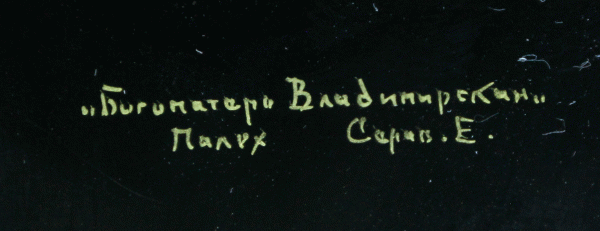 „Богоматерь Владимирская"
Палех Серав. Е.